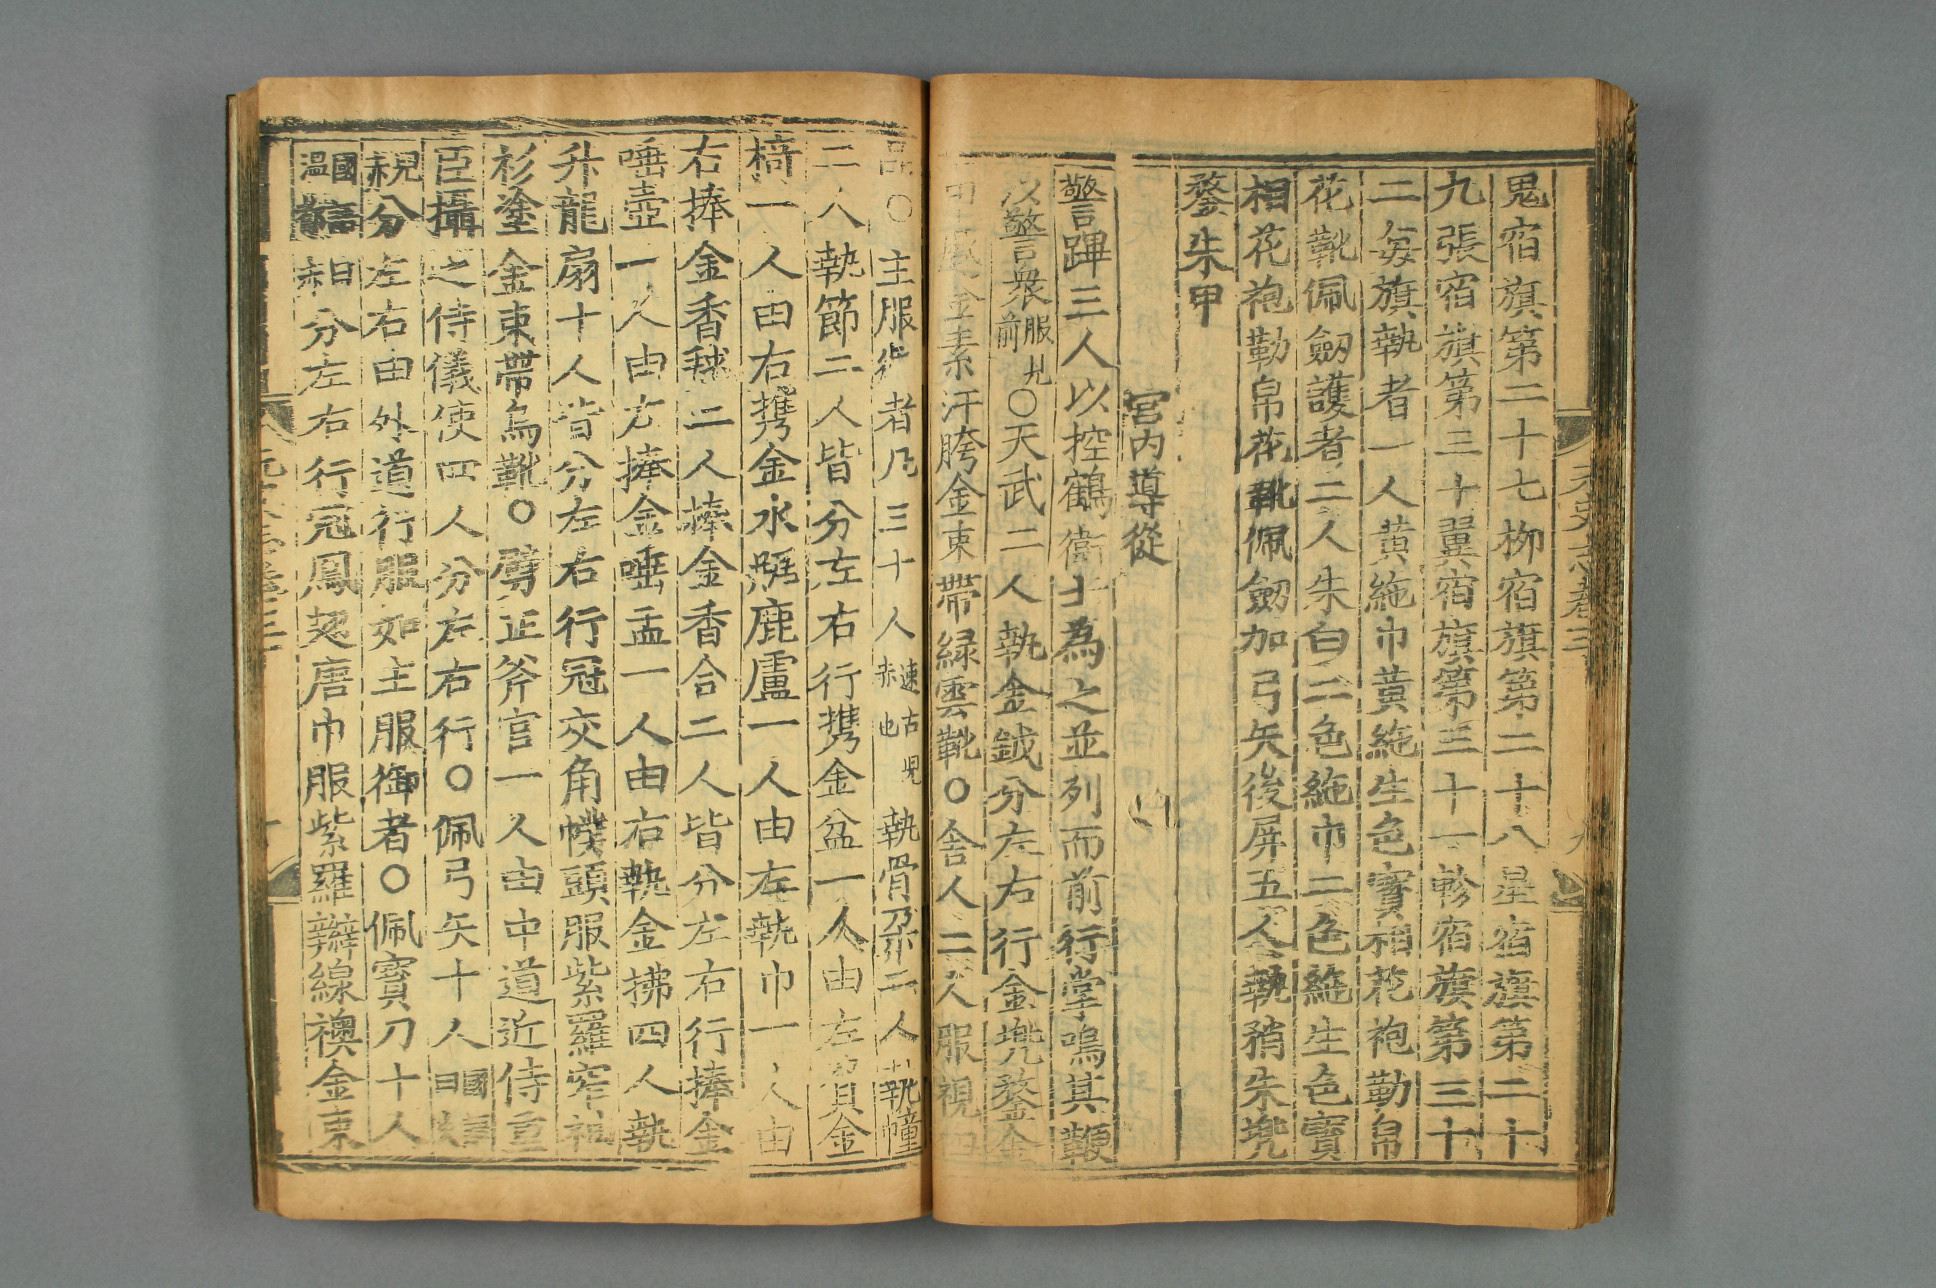 鬼宿旗第二十七柳宿旗第二十八星宿旗第二十
九張宿旗第三十翼宿旗第三十一軫宿旗第三十
二每旗執者一人黄絁巾黄絁生色寳相花袍勒帛
花靴佩劒護者二人朱白二色絁巾二色絁生色寳
相花袍勒帛花靴佩劒加弓矢後屏五人執矟朱兠
鍪朱甲
宮内導從
警蹕三人以控鶴衛士為之並列而前行掌鳴其鞭
以警衆服見前〇天武二人執金鉞分左右行金兠鍪金
金素汗胯金束帶緑雲靴〇舍人二人服視四
品〇主服御者凡三十人速古児赤也執骨朶二人執幢
二人執節二人皆分左右行携金盆一人由左負金
椅一人由右携金水瓶鹿盧一人由左執巾一人由
右捧金香毬二人捧金香合二人皆分左右行捧金
唾壺一人由左捧金唾盂一人由右執金拂四人執
升龍扇十人皆分左右行冠交角幞頭服紫羅窄袖
衫塗金束帶烏靴〇劈正斧官一人由中道近侍重
臣攝之侍儀使四人分左右行〇佩弓矢十人國語曰
児赤分左右由外道行服如主服御者〇佩寳刀十人
國語曰温都赤分左右行冠鳳翅唐巾服紫羅辮線襖金束
元史志卷三十